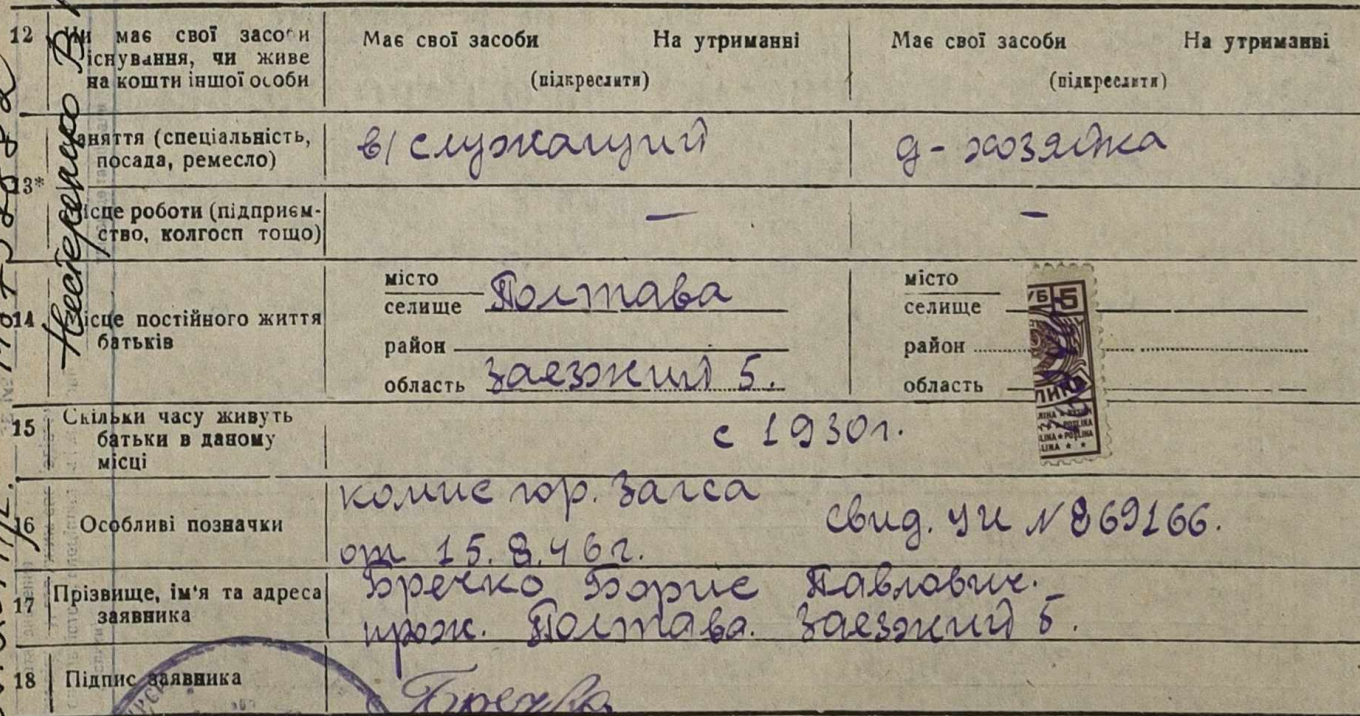 12 Чи має свої засоби існування, чи живе на кошти іншої особи
Має свої засоби На утриманні
(підкреслити)
Має свої засоби На утриманні
(підкреслити)
13*
няття (спеціальність, посада, ремесло)
в/служащий
д-хозяйка
ісце роботи (підприєм-
ство, колгосп тощо)
—
—
14 ісце постійного життя
батьків
місто
селище Полтава
район
область Заезжий 5.
місто
селище
район
область
15 Скільки часу живуть
батьки в даному
місці
с 1930г.
16 Особливі позначки
комис гор. Загса
от 15.8.46г.
свид. УИ №869166.
17 Прізвище, ім'я та адреса
заявника
Бречко Борис Павлович.
прож. Полтава. Заезжий 5.
18 Підпис заявника
Бречко
Нестеренко В